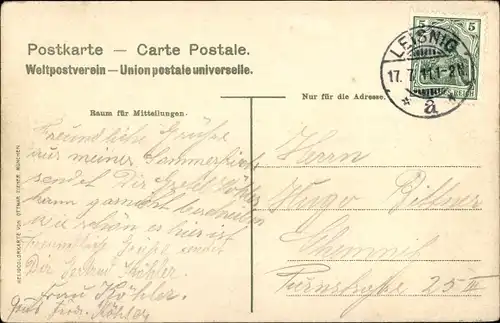 Postkarte — Carte Postale.
Weltpostverein — Union postale universelle.
Raum für Mitteilungen.
Nur für die Adresse.
5 5
REICH
LEISNIG
17. 7. 11. 1-2N.
* a *
HELIOCOLORKARTE VON OTTMAR ZIEHER, MÜNCHEN
Freundliche Grüße
aus meiner Sommerfrische
sendet Dir Köhler
kann garnicht beschreiben
wie schön es hier ist
Freundliche Grüße sendet
Dir Gertrud Köhler.
Frau Köhler.
Ferd. Köhler
Herrn
Hugo Dittner
Chemnitz
Turnstraße 25 III